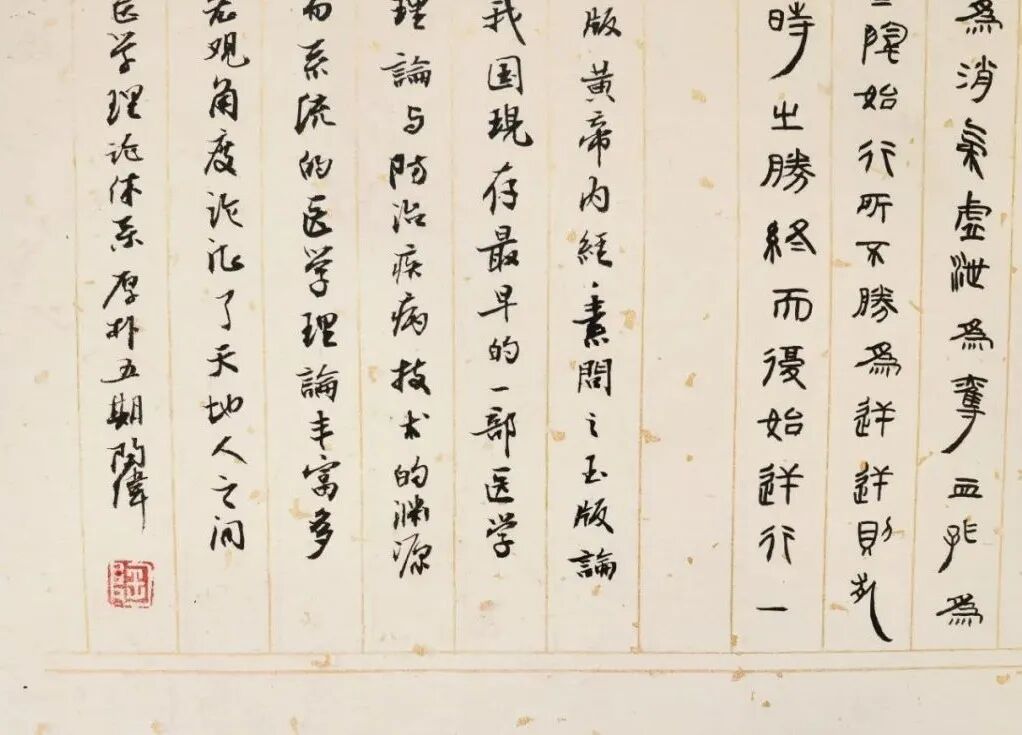 爲消氣虛泄爲奪血孤爲
陰始行所不勝爲逆逆則死
時之勝終而復始逆行一
版黄帝内經·素問之玉版論
我国現存最早的一部医学
理論与防治疾病技术的渊源
而系流的医学理論丰富多
宏观角度论证了天地人之间
医学理论体系厚朴五期陶偉
陶